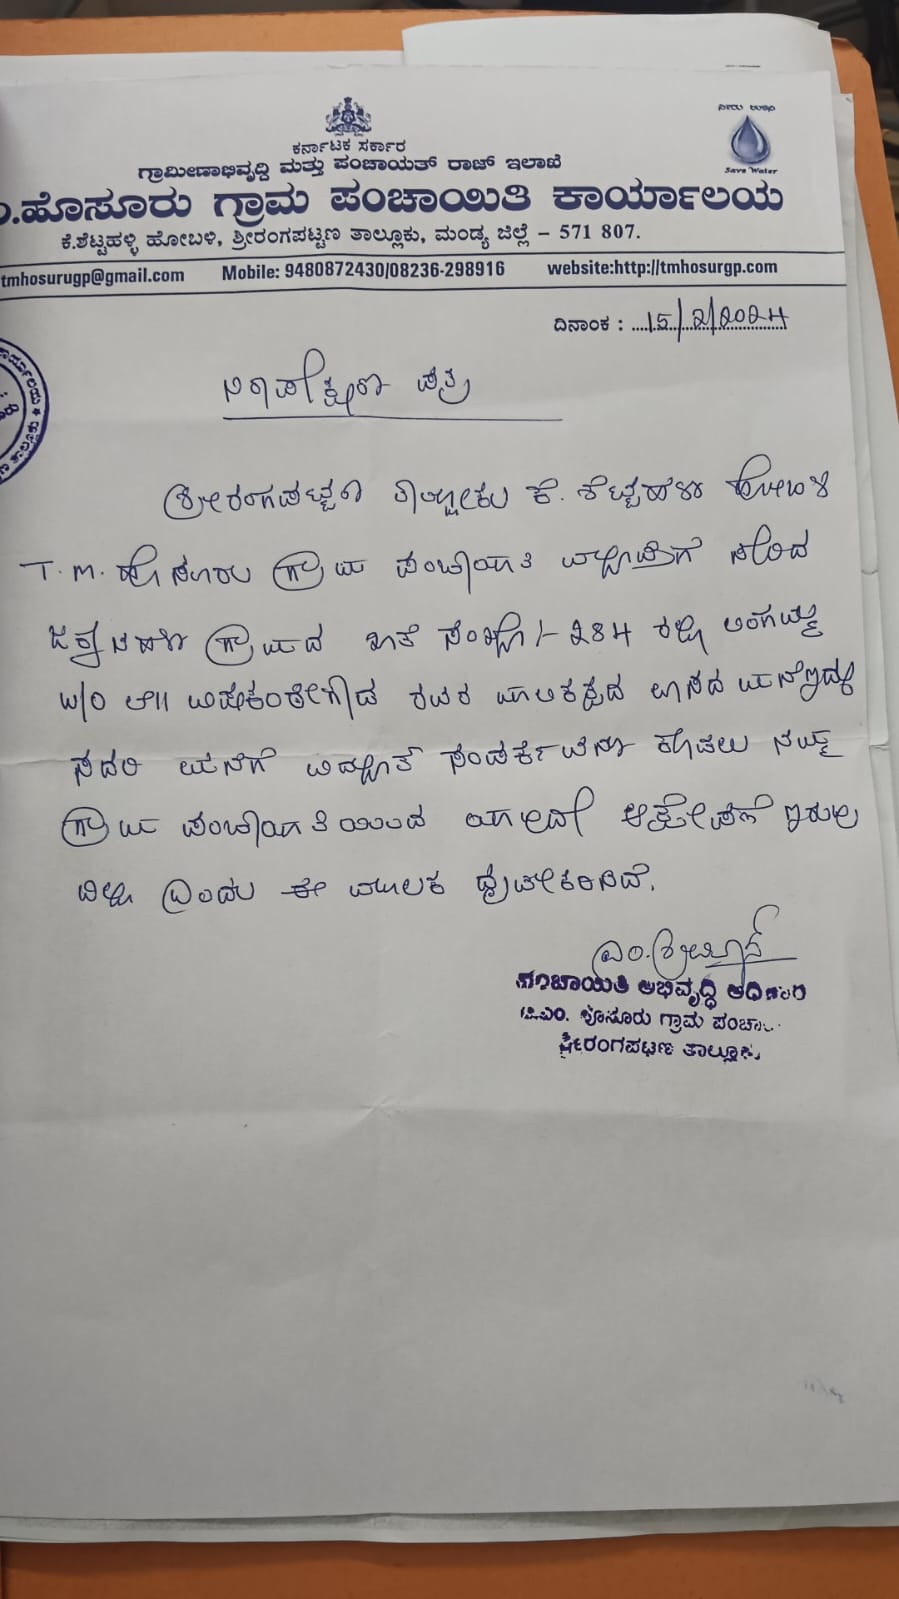 ನೀರು ಉಳಿಸಿ
Save Water
ಕರ್ನಾಟಕ ಸರ್ಕಾರ
ಗ್ರಾಮೀಣಾಭಿವೃದ್ಧಿ ಮತ್ತು ಪಂಚಾಯತ್ ರಾಜ್ ಇಲಾಖೆ
.ಹೊಸೂರು ಗ್ರಾಮ ಪಂಚಾಯಿತಿ ಕಾರ್ಯಾಲಯ
ಕೆ.ಶೆಟ್ಟಹಳ್ಳಿ ಹೋಬಳಿ, ಶ್ರೀರಂಗಪಟ್ಟಣ ತಾಲ್ಲೂಕು, ಮಂಡ್ಯ ಜಿಲ್ಲೆ – 571 807.
tmhosurugp@gmail.com Mobile: 9480872430/08236-298916 website:http://tmhosurgp.com
ದಿನಾಂಕ : 15/2/2024
ನಿರಾಪೇಕ್ಷಣಾ ಪತ್ರ
ಶ್ರೀರಂಗಪಟ್ಟಣ ತಾಲ್ಲೂಕು ಕೆ. ಶೆಟ್ಟಹಳ್ಳಿ ಹೋಬಳಿ
T.M. ಹೊಸೂರು ಗ್ರಾಮ ಪಂಚಾಯಿತಿ ವ್ಯಾಪ್ತಿಗೆ ಸೇರಿದ
ಗ್ರಾಮದ ಖಾತೆ ಸಂಖ್ಯೆ :- 284 ರಲ್ಲಿ
W/O ರವರ ಮಾಲೀಕತ್ವದ ವಾಸದ ಮನೆಇದ್ದು
ಸದರಿ ಮನೆಗೆ ವಿದ್ಯುತ್ ಸಂಪರ್ಕವನ್ನು ಕೊಡಲು ನಮ್ಮ
ಗ್ರಾಮ ಪಂಚಾಯಿತಿಯಿಂದ ಯಾವುದೇ ಆಕ್ಷೇಪಣೆ ಇರುವು
ದಿಲ್ಲ ಎಂದು ಈ ಮೂಲಕ ದೃಢೀಕರಿಸಿದೆ.
ಪಂಚಾಯಿತಿ ಅಭಿವೃದ್ಧಿ ಅಧಿಕಾರಿ
ಟಿ.ಎಂ. ಹೊಸೂರು ಗ್ರಾಮ ಪಂಚಾ
ಶ್ರೀರಂಗಪಟ್ಟಣ ತಾಲ್ಲೂಕು